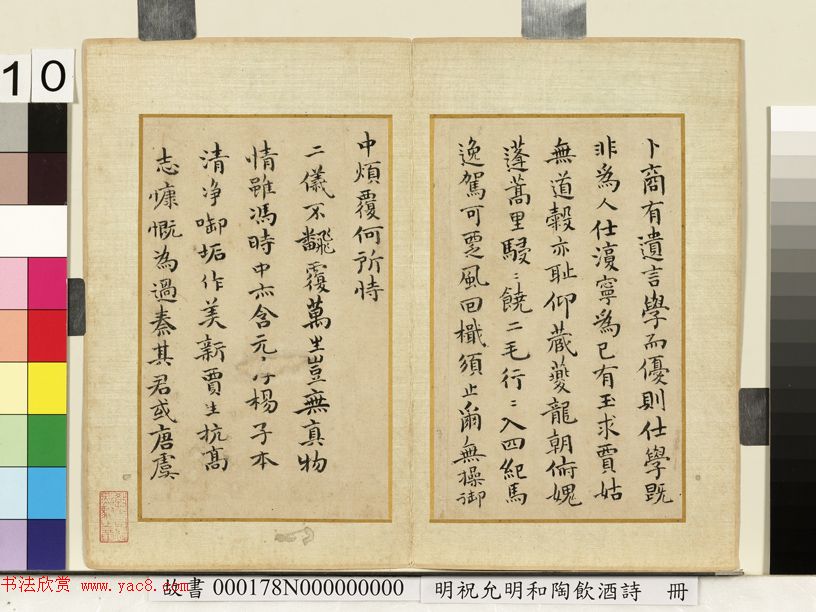 卜商有遺言學而優則仕學既
非為人仕寧為已有玉求賈姑
無道穀亦耻仰藏夔龍朝俯媿
蓬蒿里駸〻饒二毛行〻入四紀馬
逸駕可風回檝須止爾無操御
中煩覆何所恃
二儀不飜覆萬生豈無真物
情雖馮時中亦含元楊子本
清净啣垢作美新賈生抗髙
志慷慨為過秦其君或唐虞
10
书法欣赏 www.yac8.com
故書 000178N000000000
明祝允明和陶飲酒詩 冊